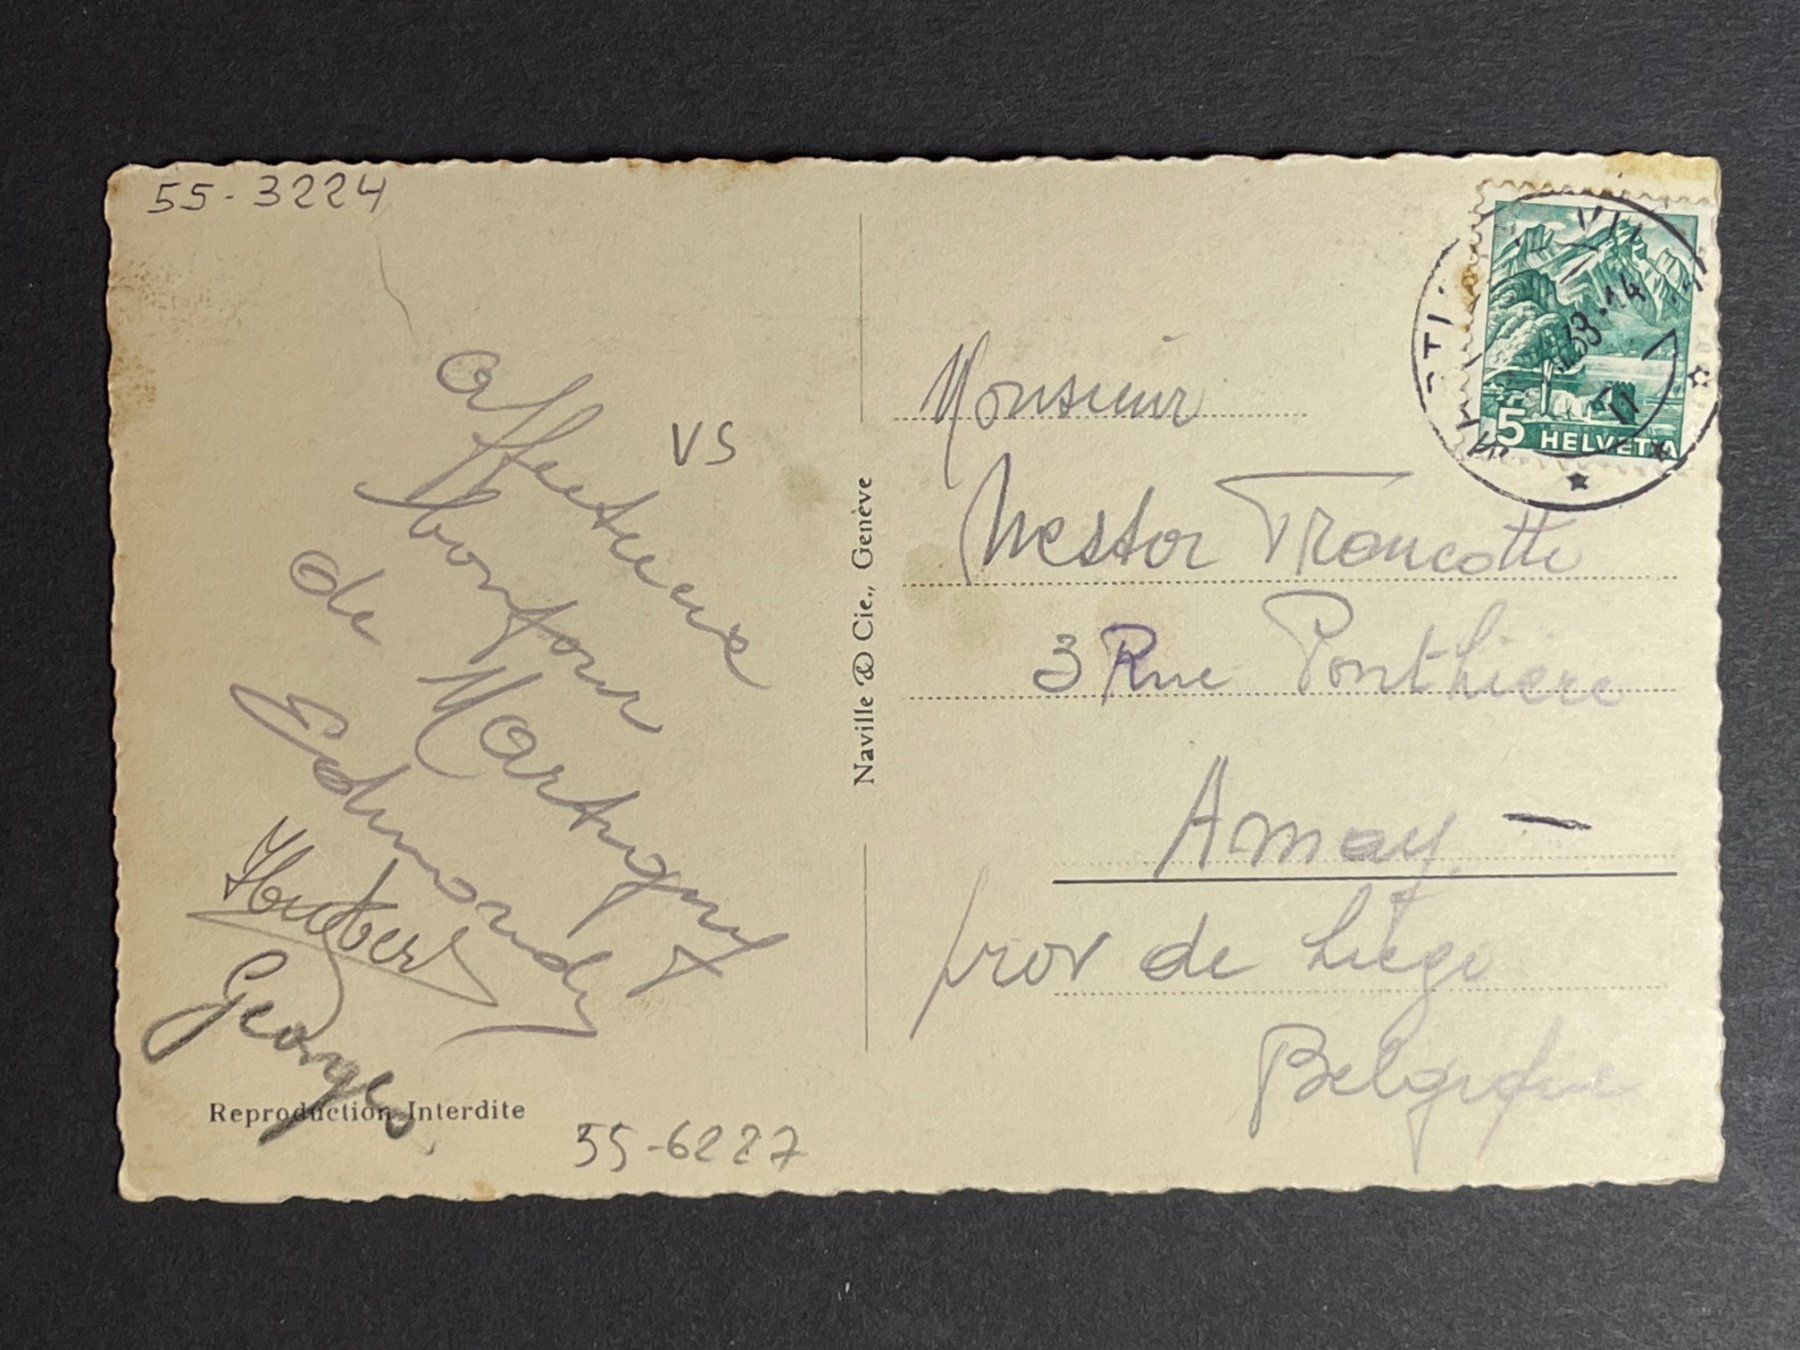 55-3224
Affectueux
VS
bonjour
de Martigny
Edmond
Houbert
Georges
Reproduction Interdite
55-6227
Naville & Cie., Genève
5 HELVETIA
Monsieur
Nestor Francotte
3 Rue Ponthiere
Amay –
prov de Liège
Belgique